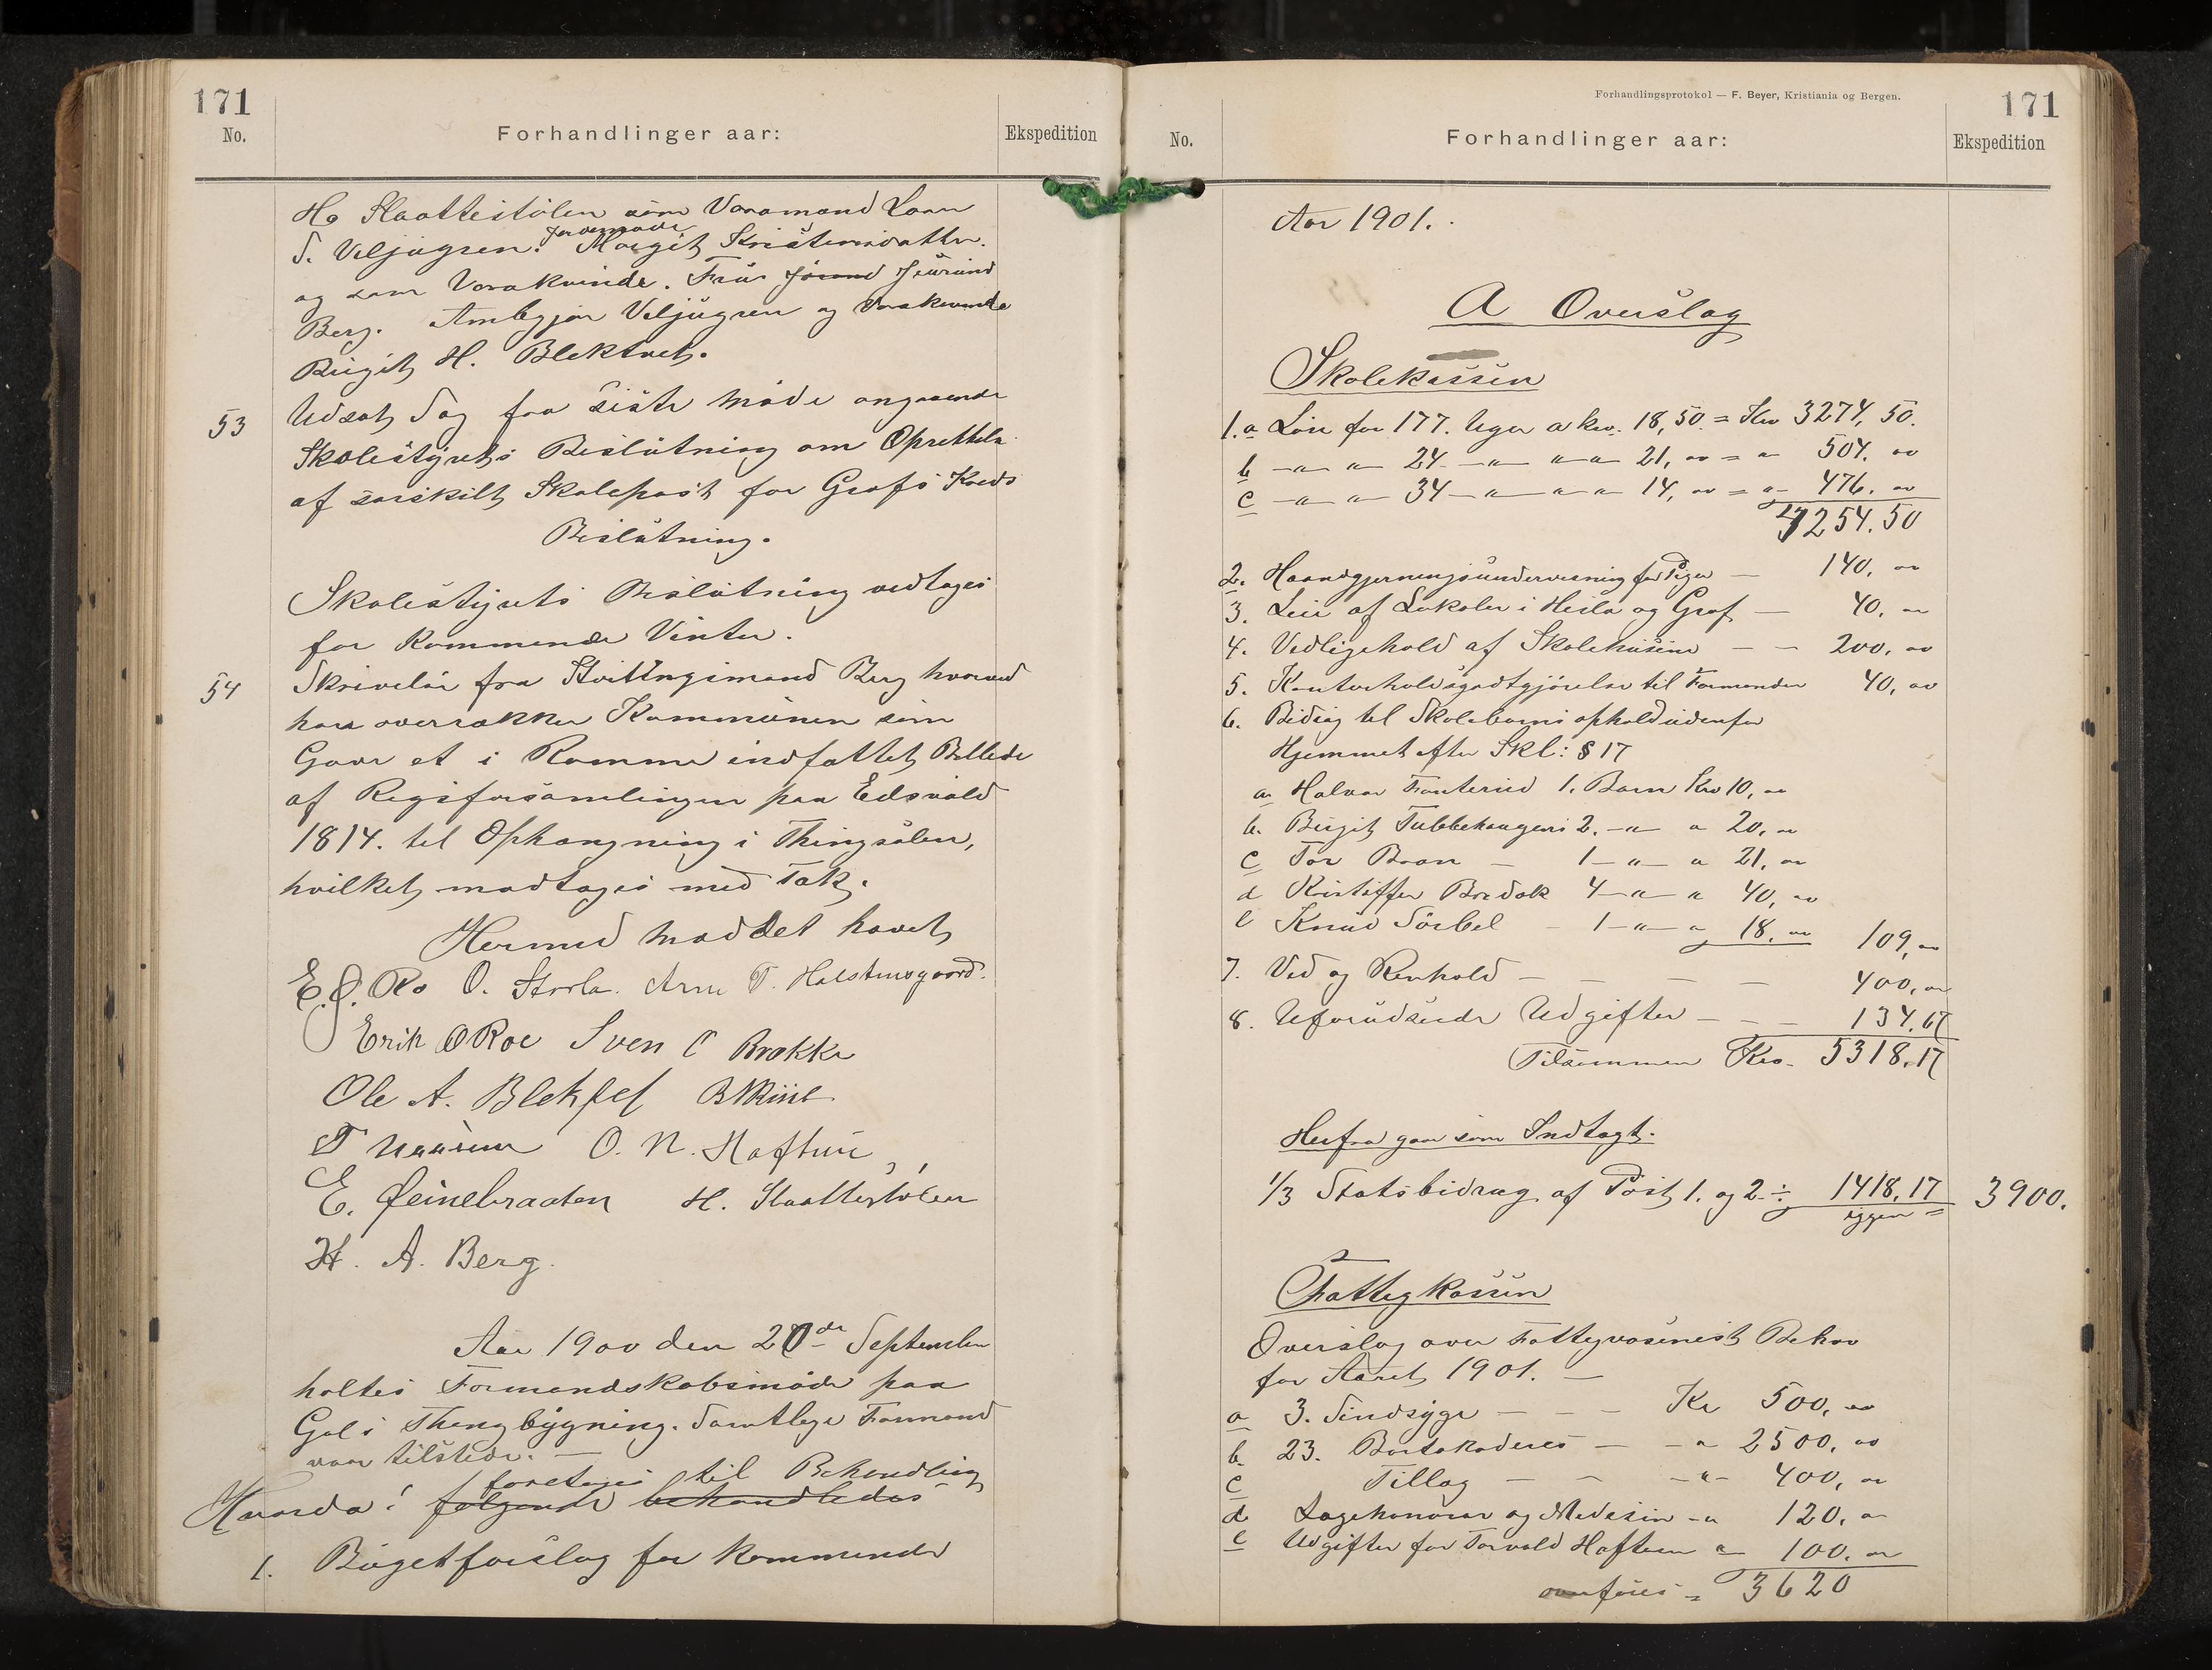 171
No.
Forhandlinger aar:
Ekspedition
Ho Slaattestölen som Varamand Lars
S. Veljugsen. Jordemoder Margit Kristensdatter.
og som Varakvinde. Frü Jörand Jöründ
Berg. Ambgjør Veljugsen og Varakvinde
Birgit H. Blektvet.
53 Udsat Sag fra siste møde angaaende
Skolestyrets Beslutning om Oprettelse
af særskilt Skolepost for Grøfs Kreds
Beslutning.
Skolestyrets Beslutning vedtages
for kommende Vinter.
54 Skrivelse fra Storthingsmand Berg hvorved
han overrækker Kommunen som
Gave et i Ramme indfattet Billede
af Rigsforsamlingen paa Eidsvold
1814. til Ophængning i Thingsalen,
hvilket modtages med Tak.
Hermed mødet hævet
E. O. Ro O. Storla. Arne T. Halstensgaard.
Erik O Roe Sven O Brække
Ole A. Blekset
O. N. Haftun
E. Feinebraaten H. Slaattestølen
H. A. Berg.
Aar 1900 den 20de September
holtes Formandskabsmøde paa
Gols Thingbygning. Samtlige Formænd
var tilstede.
foretoges til Behandling
Hvorda: følgende behandledes
1. Büdgetforslag for kommende
Forhandlingsprotokol — F. Beyer, Kristiania og Bergen.
171
No.
Forhandlinger aar:
Ekspedition
Aar 1901.
A Overslag
Skolekassen
1. a Løn for 177. Uger a kr. 18,50 = Kr 3274,50.
b —"— " 24 —"— " " 21, oo = " 504. oo
c —"— " 34 —"— " " 14, oo = " 476. oo
4254.50
2. Haandgjerningsundervisning for Piger — 140, oo
3. Leie af Lokaler i Hesla og Grøf — 40, oo
4. Vedligehold af Skolehusene — — 200, oo
5. Kontorholdsgodtgjørelse til Formanden 40, oo
6. Bidrag til Skolebørns ophold udenfor
Hjemmet efter Skl: § 17
a Halvor Fonterud 1. Barn Kr 10, oo
b. Birgit Tubbehaugens 2. —"— " 20, oo
c Tor Braan — 1 —"— " 21, oo
d Kristoffer Bredok 4 —"— " 40, oo
e Knud Sørbel — 1 —"— " 18. oo 109, oo
7. Ved og Renhold — — — — 400, oo
8. Uforudseede Udgifter — — — 134.67
Tilsammen Kr. 5318.17
Herfra gaar som Indtægt.
1/3 Statsbidrag af Post 1. og 2. ÷ 1418.17
igjen = 3900.
Fattigkassen
Overslag over Fattigvæsenets Behov
for Aaret 1901. —
a 3. Sindsyge — — — Kr 500, oo
b. 23. Bortakorderes — — " 2500, oo
c Tillæg — — —"— 400, oo
d Lægehonorar og Medesin — " 120, oo
e Udgifter for Torvald Haftun " 100. oo
overføres = 3620